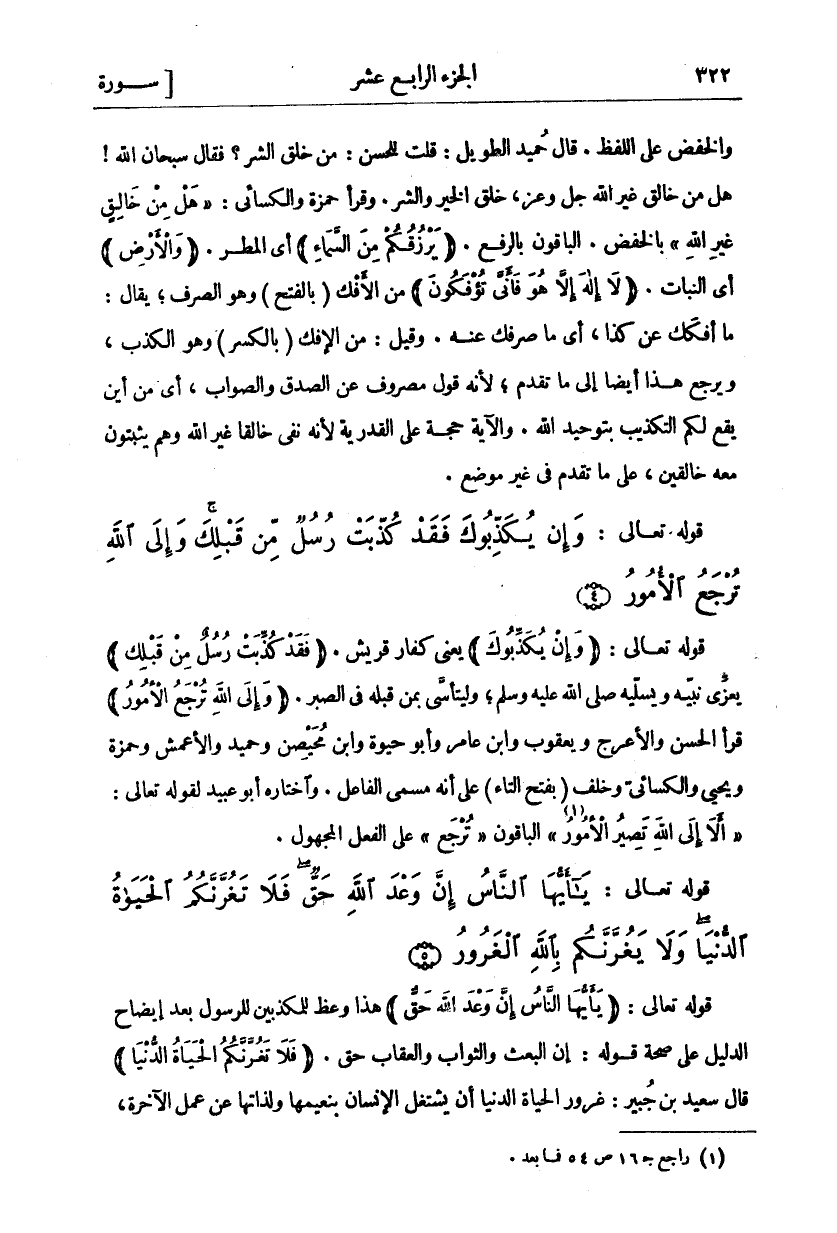 ٣٢٢ الجزء الرابع عشر [ سـورة
والخفض على اللفظ . قال حُميد الطويل : قلت للحسن : من خلق الشر ؟ فقال سبحان الله !
هل من خالق غير الله جل وعز، خلق الخير والشر . وقرأ حمزة والكسائى : « هَلْ مِنْ خَالِقٍ
غيرِ اللهِ » بالخفض . الباقون بالرفع . ﴿ يَرْزُقُكُمْ مِنَ السَّمَاءِ ﴾ أى المطـر . ﴿ وَالْأَرْضِ ﴾
أى النبات . ﴿ لَا إِلٰهَ إِلَّا هُوَ فَأَنَّى تُؤْفَكُونَ ﴾ من الأَفْك ( بالفتح ) وهو الصرف ؛ يقال :
ما أفَكَك عن كذا ، أى ما صرفك عنـه . وقيل : من الإفك ( بالكسر ) وهو الكذب ،
ويرجع هـذا أيضا إلى ما تقدم ؛ لأنه قول مصروف عن الصدق والصواب ، أى من أين
يقع لكم التكذيب بتوحيد الله . والآية حجـة على القدرية لأنه نفى خالقا غير الله وهم يثبتون
معه خالقين ، على ما تقدم فى غير موضع .
قوله تعـالى : وَإِن يُكَذِّبُوكَ فَقَدْ كُذِّبَتْ رُسُلٌ مِّن قَبْلِكَۚ وَإِلَى ٱللَّهِ
تُرْجَعُ ٱلْأُمُورُ ٤
قوله تعـالى : ﴿ وَإِنْ يُكَذِّبُوكَ ﴾ يعنى كفار قريش . ﴿ فَقَدْ كُذِّبَتْ رُسُلٌ مِنْ قَبْلِكَ ﴾
يعزّى نبيّه ويسلّيه صلى الله عليه وسلم ؛ وليتأسّى بمن قبله فى الصبر . ﴿ وَإِلَى اللهِ تُرْجَعُ الْأُمُورُ ﴾
قرأ الحسن والأعرج ويعقوب وابن عامر وأبو حيوة وابن مُحَيْصِن وحميد والأعمش وحمزة
ويحيى والكسائىّ وخلف ( بفتح التاء ) على أنه مسمى الفاعل . وٱختاره أبو عبيد لقوله تعالى :
« أَلَا إِلَى اللهِ تَصِيرُ الْأُمُورُ (١) » الباقون « تُرْجَع » على الفعل المجهول .
قوله تعـالى : يَٰٓأَيُّهَا ٱلنَّاسُ إِنَّ وَعْدَ ٱللَّهِ حَقٌّۖ فَلَا تَغُرَّنَّكُمُ ٱلْحَيَوٰةُ
ٱلدُّنْيَاۖ وَلَا يَغُرَّنَّكُم بِٱللَّهِ ٱلْغَرُورُ ٥
قوله تعالى : ﴿ يَأَيُّهَا النَّاسُ إِنَّ وَعْدَ اللهِ حَقٌّ ﴾ هذا وعظ للمكذبين للرسول بعد إيضاح
الدليل على صحة قـوله : إن البعث والثواب والعقاب حق . ﴿ فَلَا تَغُرَّنَّكُمُ الْحَيَاةُ الدُّنْيَا ﴾
قال سعيد بن جُبير : غرور الحياة الدنيا أن يشتغل الإنسان بنعيمها ولذاتها عن عمل الآخرة،
(١) راجع جـ ١٦ ص ٥٤ فـا بعد .